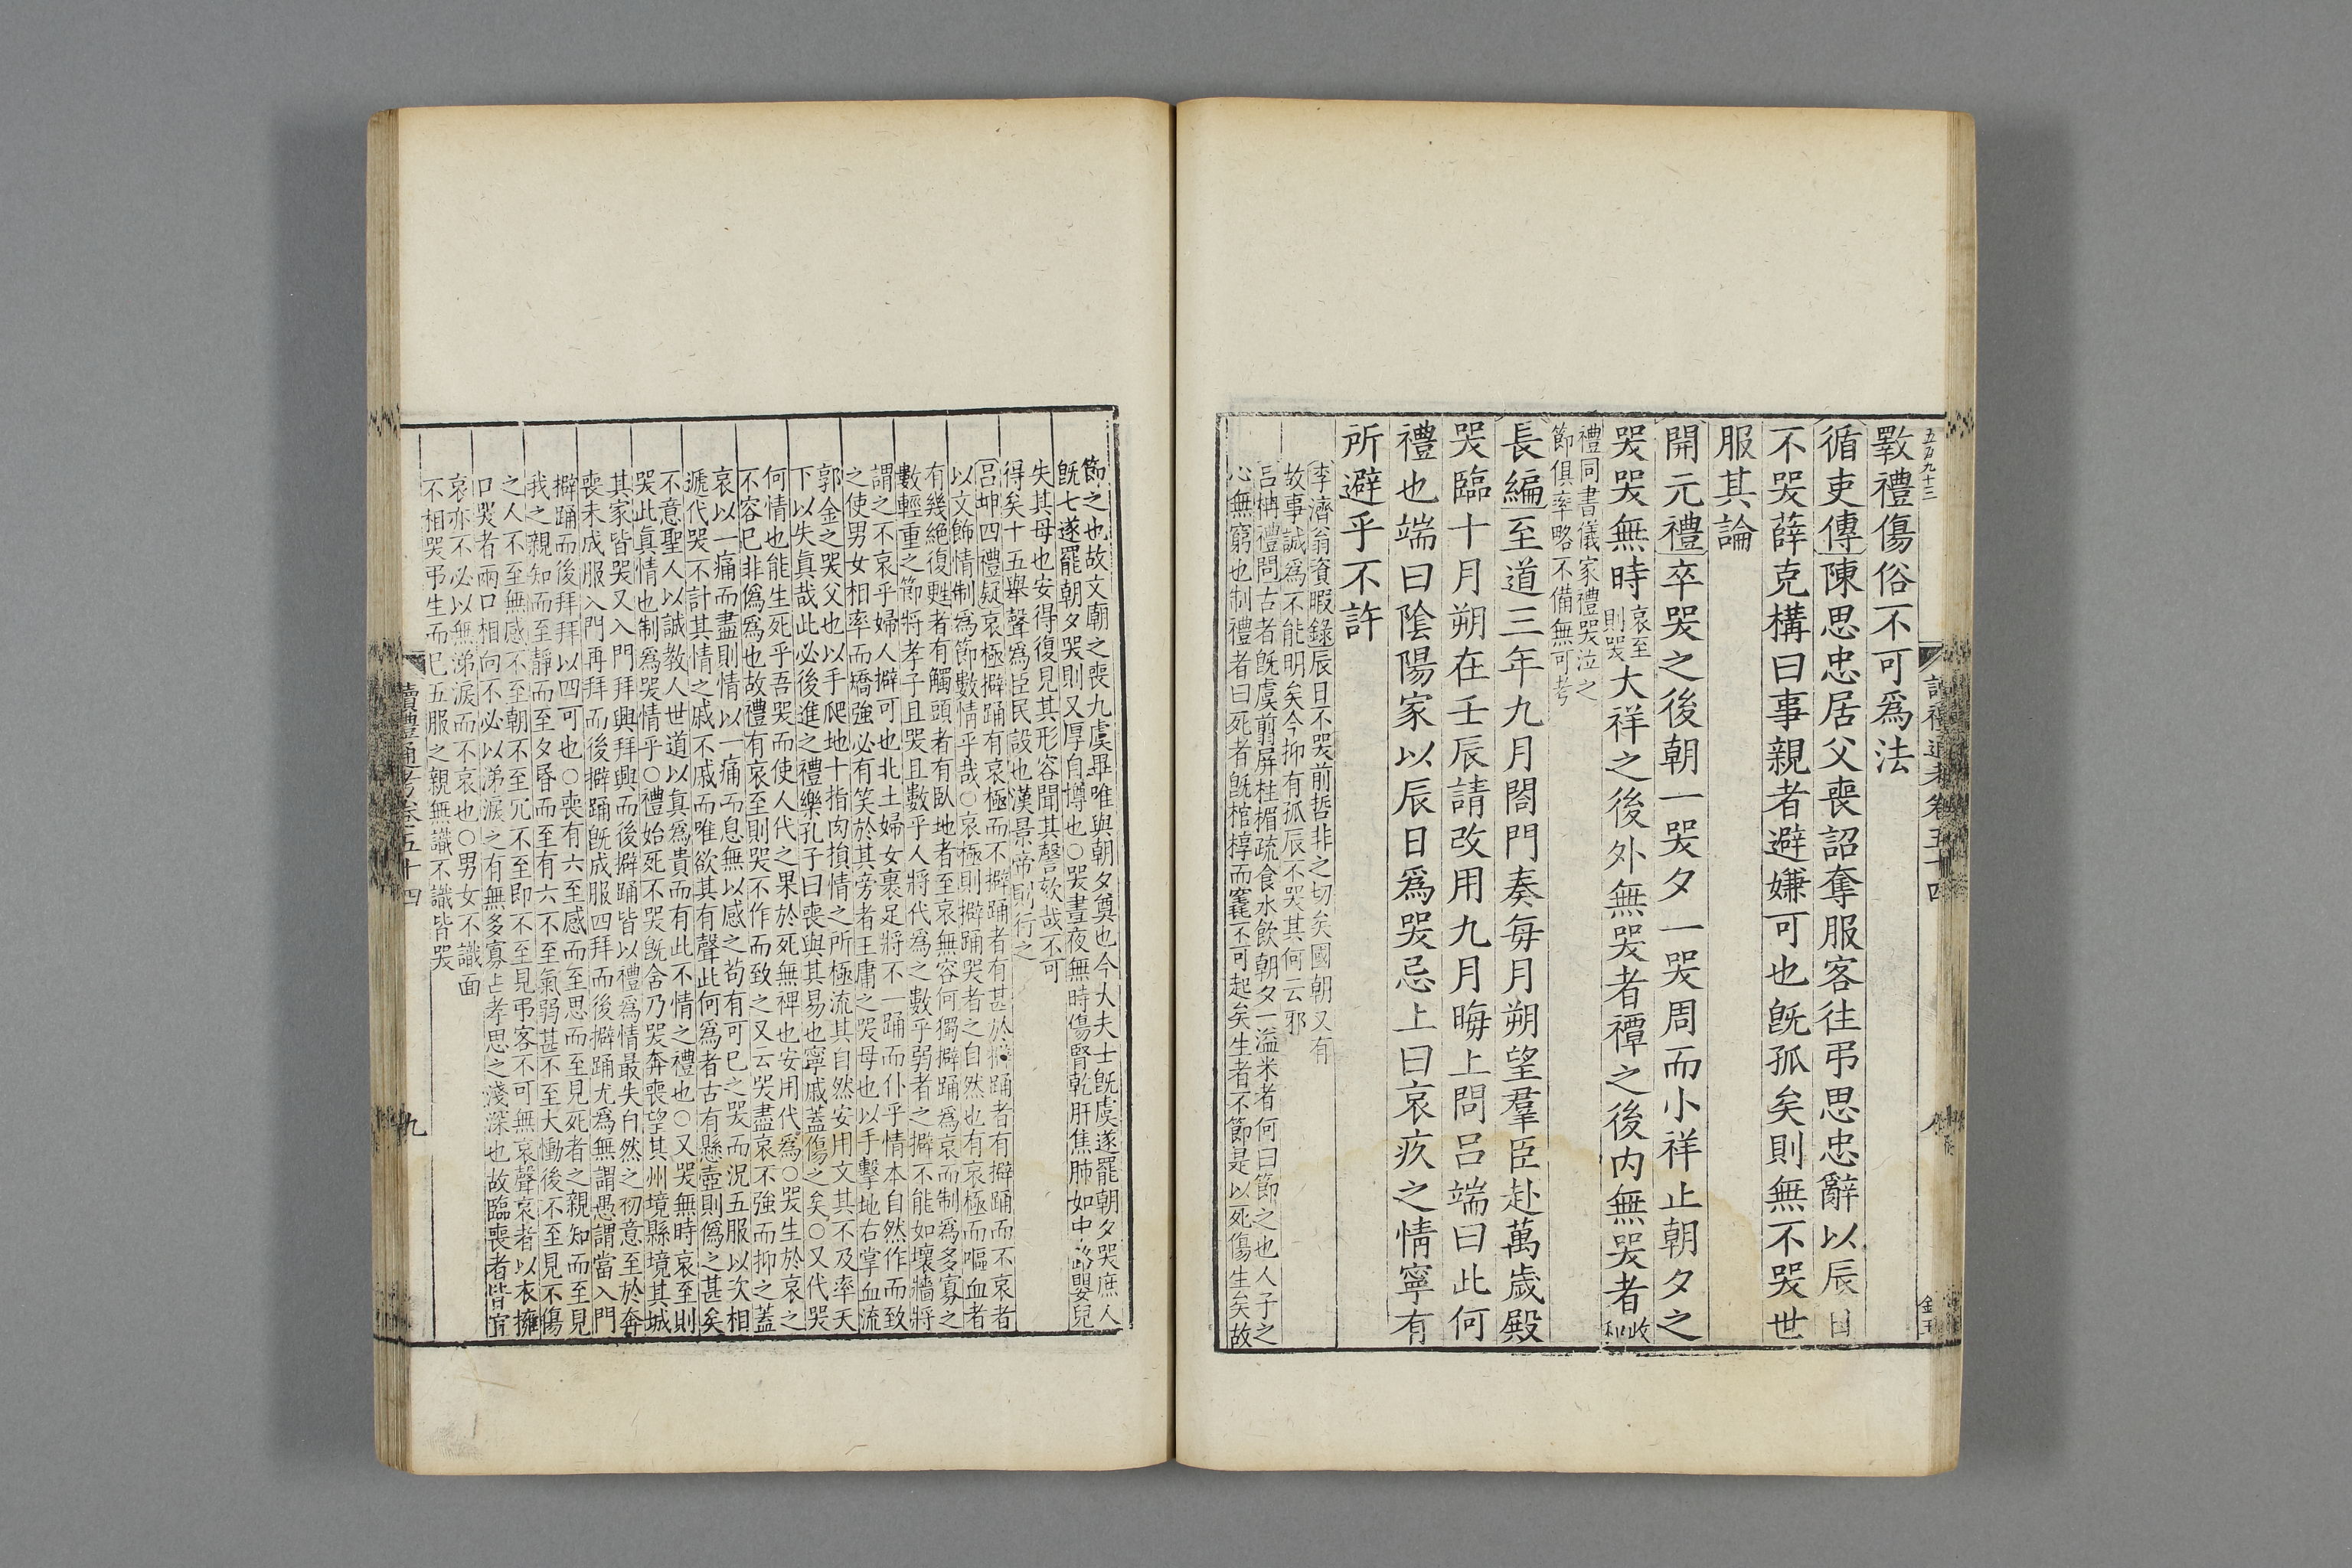 五百九十三
斁禮傷俗不可爲法
循吏傳陳思忠居父喪詔奪服客往弔思忠辭以辰日
不哭薛克構曰事親者避嫌可也旣孤矣則無不哭世
服其論
開元禮卒哭之後朝一哭夕一哭周而小祥止朝夕之
哭哭無時哀至則哭大祥之後外無哭者禫之後内無哭者政和
禮同書儀家禮哭泣之
節俱率略不備無可考
長編至道三年九月閤門奏每月朔望羣臣赴萬歲殿
哭臨十月朔在壬辰請改用九月晦上問呂端曰此何
禮也端曰陰陽家以辰日爲哭忌上曰哀疚之情寧有
所避乎不許
李濟翁資暇錄辰日不哭前哲非之切矣國朝又有
故事誠爲不能明矣今抑有孤辰不哭其何云邪
呂柟禮問古者旣虞翦屏柱楣疏食水飲朝夕一溢米者何曰節之也人子之
心無窮也制禮者曰死者旣棺椁而窆不可起矣生者不節是以死傷生矣故
讀禮通考卷五十四
節之也故文廟之喪九虞畢唯與朝夕奠也今大夫士旣虞遂罷朝夕哭庶人
旣七遂罷朝夕哭則又厚自博也○哭晝夜無時傷腎乾肝焦肺如中路嬰兒
失其母也安得復見其形容聞其謦欬哉不可
得矣十五舉聲爲臣民設也漢景帝則行之
呂坤四禮疑哀極擗踊有哀極而不擗踊者有甚於擗踊者有擗踊而不哀者
以文飾情制爲節數情乎哉○哀極則擗踊哭者之自然也有哀極而嘔血者
有幾絶復甦者有觸頭者有臥地者至哀無容何獨擗踊爲哀而制爲多寡之
數輕重之節將孝子且哭且數乎人將代爲之數乎弱者之擗不能如壞牆將
謂之不哀乎婦人擗可也北土婦女裹足將不一踊而仆乎情本自然作而致
之使男女相率而矯強必有笑於其旁者王庸之哭母也以手擊地右掌血流
郭金之哭父也以手爬地十指肉損情之所極流其自然安用文其不及率天
下以失眞哉此必後進之禮樂孔子曰喪與其易也寧戚蓋傷之矣○又代哭
何情也能生死乎吾哭而使人代之果於死無裨也安用代爲○哭生於哀之
不容已非僞爲也故禮有哀至則哭不作而致之又云哭盡哀不強而抑之蓋
哀以一痛而盡則情以一痛而息無以感之苟有可已之哭而況五服以次相
遞代哭不計其情之戚不戚而唯欲其有聲此何爲者古有懸壺則僞之甚矣
不意聖人以誠教人世道以眞爲貴而有此不情之禮也○又哭無時哀至則
哭此眞情也制爲哭情乎○禮始死不哭旣舍乃哭奔喪望其州境縣境其城
其家皆哭又入門拜興拜興而後擗踊皆以禮爲情最失自然之初意至於奔
喪未成服入門再拜而後擗踊旣成服四拜而後擗踊尤爲無謂愚謂當入門
擗踊而後拜拜以四可也○喪有六至感而至思而至見死者之親知而至見
我之親知而至靜而至夕昏而至有六不至氣弱甚不至大慟後不至見不傷
之人不至無感不至朝不至冗不至即不至見弔客不可無哀聲哀者以衣擁
口哭者兩口相向不必以涕淚之有無多寡占孝思之淺深也故臨喪者皆宜
哀亦不必以無涕淚而不哀也○男女不識面
不相哭弔生而已五服之親無識不識皆哭
讀禮通考卷五十四
九